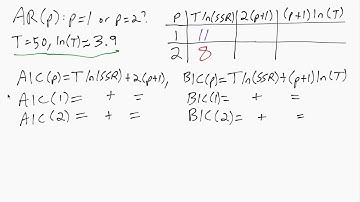 AR(p): p=1 or p=2?
T=50, ln(T)≈3.9
P | Tln(SSR) | 2(p+1) | (p+1)ln(T)
1 | 11
2 | 8
AIC(p)=Tln(SSR)+2(p+1), BIC(p)=Tln(SSR)+(p+1)ln(T)
AIC(1)= + = BIC(1)= + =
AIC(2)= + = BIC(2)= + =